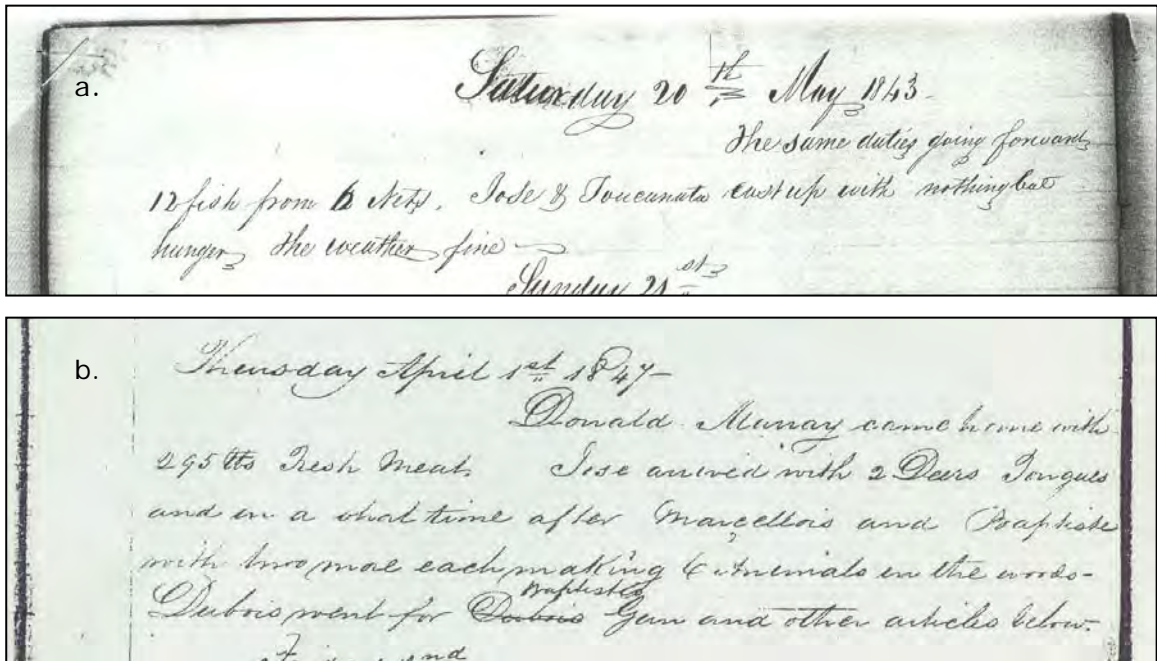 a.
Saturday 20th May 1843-
The same duties going forward
12 fish from 6 Nets. Jose & Toucanata cast up with nothing but
hunger, the weather fine
Sunday 21st
b.
Thursday April 1st 1847-
Donald Murray came home with
295 lbs Fresh Meat Jose arrived with 2 Deers Tongues
and in a short time after Marcellois and Baptiste
with two more each making 6 Animals in the woods-
Baptistes
Dubois went for Dubois Gun and other articles below.
Friday 2nd